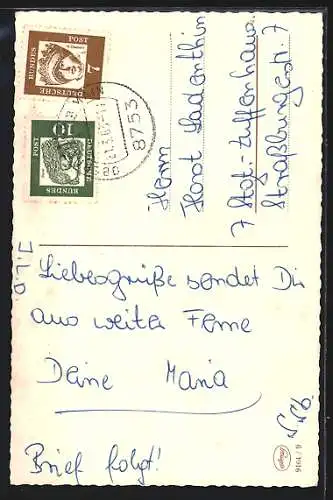 7
DEUTSCHE BUNDESPOST
10
DEUTSCHE BUNDESPOST
8753
Herrn
Horst Ladenthin
7 Stgt.-Zuffenhausen
Straßburgerstr. 7
Liebesgrüße sendet Dir
aus weiter Ferne
Deine Maria
Brief folgt!
6 / 1916